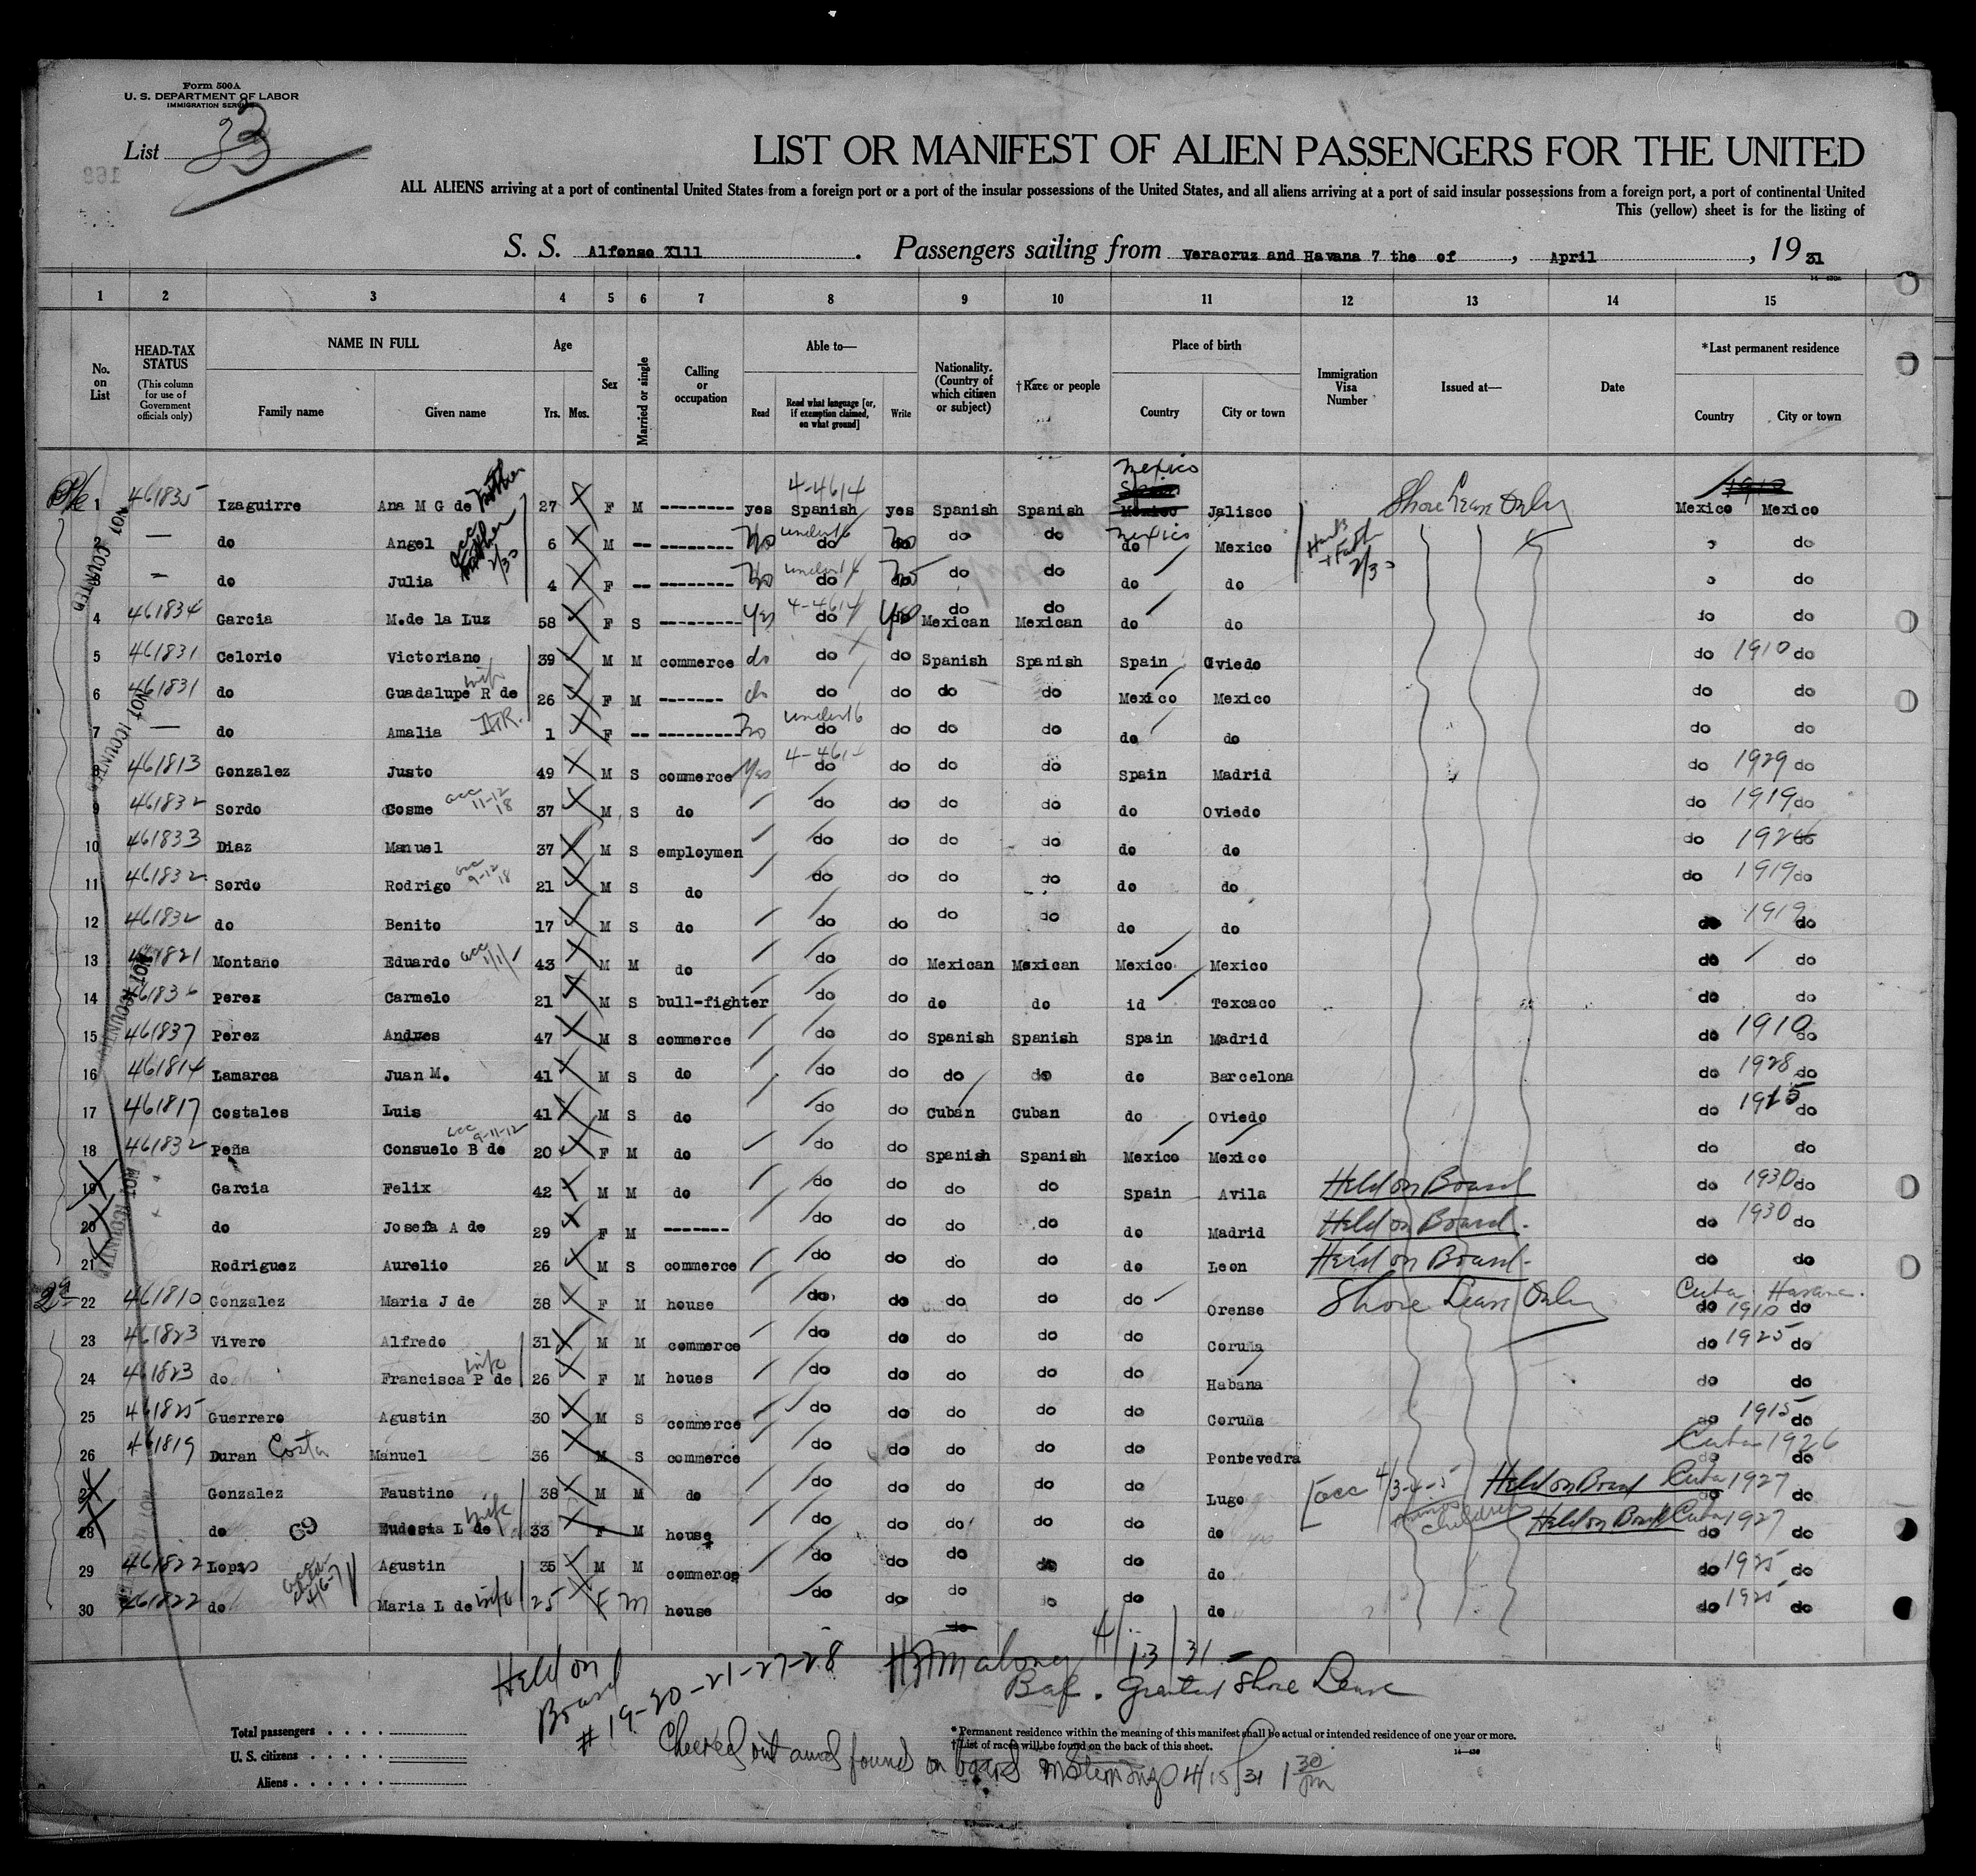 Form 500A
U. S. DEPARTMENT OF LABOR
IMMIGRATION SERVICE
List 33
LIST OR MANIFEST OF ALIEN PASSENGERS FOR THE UNITED
ALL ALIENS arriving at a port of continental United States from a foreign port or a port of the insular possessions of the United States, and all aliens arriving at a port of said insular possessions from a foreign port, a port of continental United
This (yellow) sheet is for the listing of
S. S. Alfonso X111 . Passengers sailing from Veracruz and Havana 7 the of , April , 19 31
1 2 3 4 5 6 7 8 9 10 11 12 13 14 15
No. on List
HEAD-TAX STATUS
(This column for use of Government officials only)
NAME IN FULL
Family name Given name
Age
Yrs. Mos.
Sex
Married or single
Calling or occupation
Able to—
Read Read what language [or, if exemption claimed, on what ground] Write
Nationality. (Country of which citizen or subject)
†Race or people
Place of birth
Country City or town
Immigration Visa Number
Issued at—
Date
*Last permanent residence
Country City or town
1 461835 Izaguirre Ana M G de 27 F M -------- yes 4-4614 Spanish yes Spanish Spanish Mexico Jalisco Shore Leave Only Mexico Mexico
2 — do Angel 6 M -- -------- No under 16 do No do do Mexico do Mexico do
3 — do Julia 4 F -- -------- No under 16 do No do do do do do
4 461834 Garcia M.de la Luz 58 F S --------- Yes 4-4614 do Yes do Mexican do Mexican do do do do
5 461831 Celorio Victoriano 39 M M commerce do do do Spanish Spanish Spain Oviedo do 1910 do
6 461831 do Guadalupe R de wife 26 F M ------- do do do do do Mexico Mexico do do
7 — do Amalia 1 F -- --------- No under 16 do do do do do do do do
8 461813 Gonzalez Justo 49 M S commerce Yes 4-4614 do do do do Spain Madrid do 1929 do
9 461832 Sordo Cosme acc 11-12 18 37 M S do do do do do do Oviedo do 1919 do
10 461833 Diaz Manuel 37 M S employmen do do do do do do do 1926
11 461832 Sordo Rodrigo acc 9-12 18 21 M S do do do do do do do do 1919 do
12 461832 do Benito 17 M S do do do do do do do do 1919 do
13 461821 Montaño Eduardo 43 M M do do do Mexican Mexican Mexico Mexico do do
14 461836 Perez Carmelo 21 M S bull-fighter do do do do id Texcaco do do
15 461837 Perez Andres 47 M S commerce do do Spanish Spanish Spain Madrid do 1910 do
16 461814 Lamarca Juan M. 41 M S do do do do do do Barcelona do 1928 do
17 461817 Costales Luis 41 M S do do do Cuban Cuban do Oviedo do 1915 do
18 461832 Peña Consuelo B de acc 9-11-12 20 F M do do do Spanish Spanish Mexico Mexico do do
19 Garcia Felix 42 M M do do do do do Spain Avila Held on Board do 1930 do
20 do Josefa A de 29 F M ------- do do do do do Madrid Held on Board do 1930 do
21 Rodriguez Aurelio 26 M S commerce do do do do do Leon Held on Board do do
22 461810 Gonzalez Maria J de 38 F M house do do do do do Orense Shore Leave Only Cuba Havana do 1910 do
23 461823 Vivero Alfredo 31 M M commerce do do do do do Coruña do 1925 do
24 461823 do Francisca P de wife 26 F M houes do do do do do Habana do do
25 461825 Guerrero Agustin 30 M S commerce do do do do do Coruña do 1915 do
26 461819 Duran Costa Manuel 36 M S commerce do do do do do Pontevedra Cuba 1926 do do
27 Gonzalez Faustino 38 M M do do do do do do Lugo acc 4/3-4-5 Held on Board Cuba 1927 do do
28 do 69 Eudosia L de wife 33 F M house do do do do do do children Held on Board Cuba 1927 do do
29 461822 Lopez Agustin 35 M M commerce do do do do do do do 1925 do
30 461822 do Maria L de wife 25 F M house do do do do do do do 1925 do
NOT COUNTED
Held on Board # 19-20-21-27-28
4/13/31
Granted Shore Leave
Checked out and found on board 4/15/31 1 30 pm
Total passengers . . . .
U. S. citizens . . . . .
Aliens . . . . . .
*Permanent residence within the meaning of this manifest shall be actual or intended residence of one year or more.
†List of races will be found on the back of this sheet.